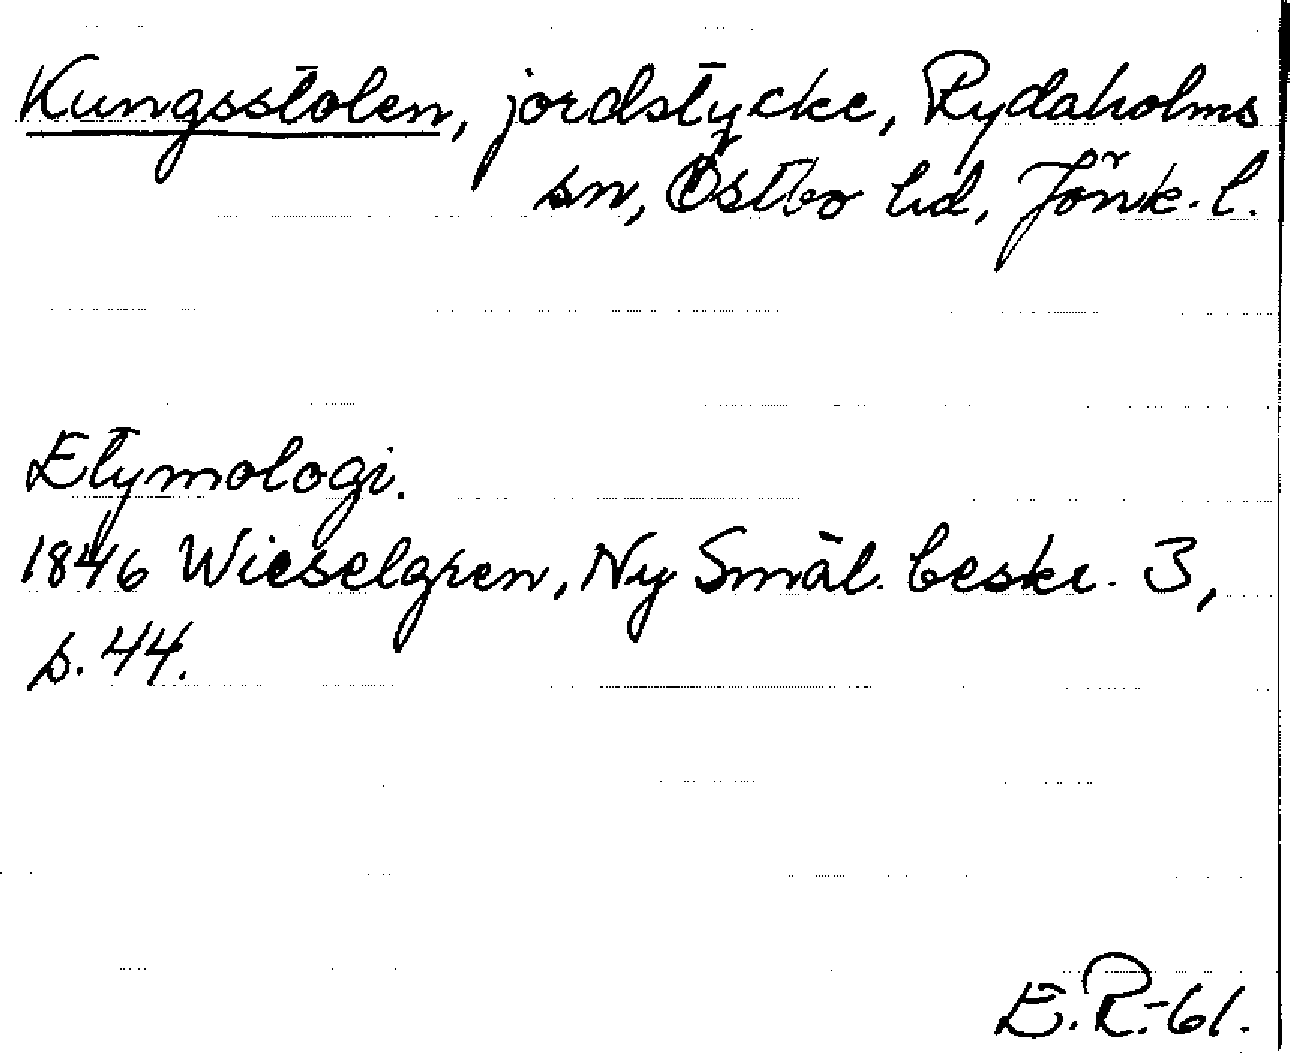 Kungsstolen, jordstycke, Rydaholms
sn, Östbo hd, Jönk. l.
Etymologi.
1846 Wieselgren, Ny Smål. beskr. 3,
s. 44.
E.R.-61.